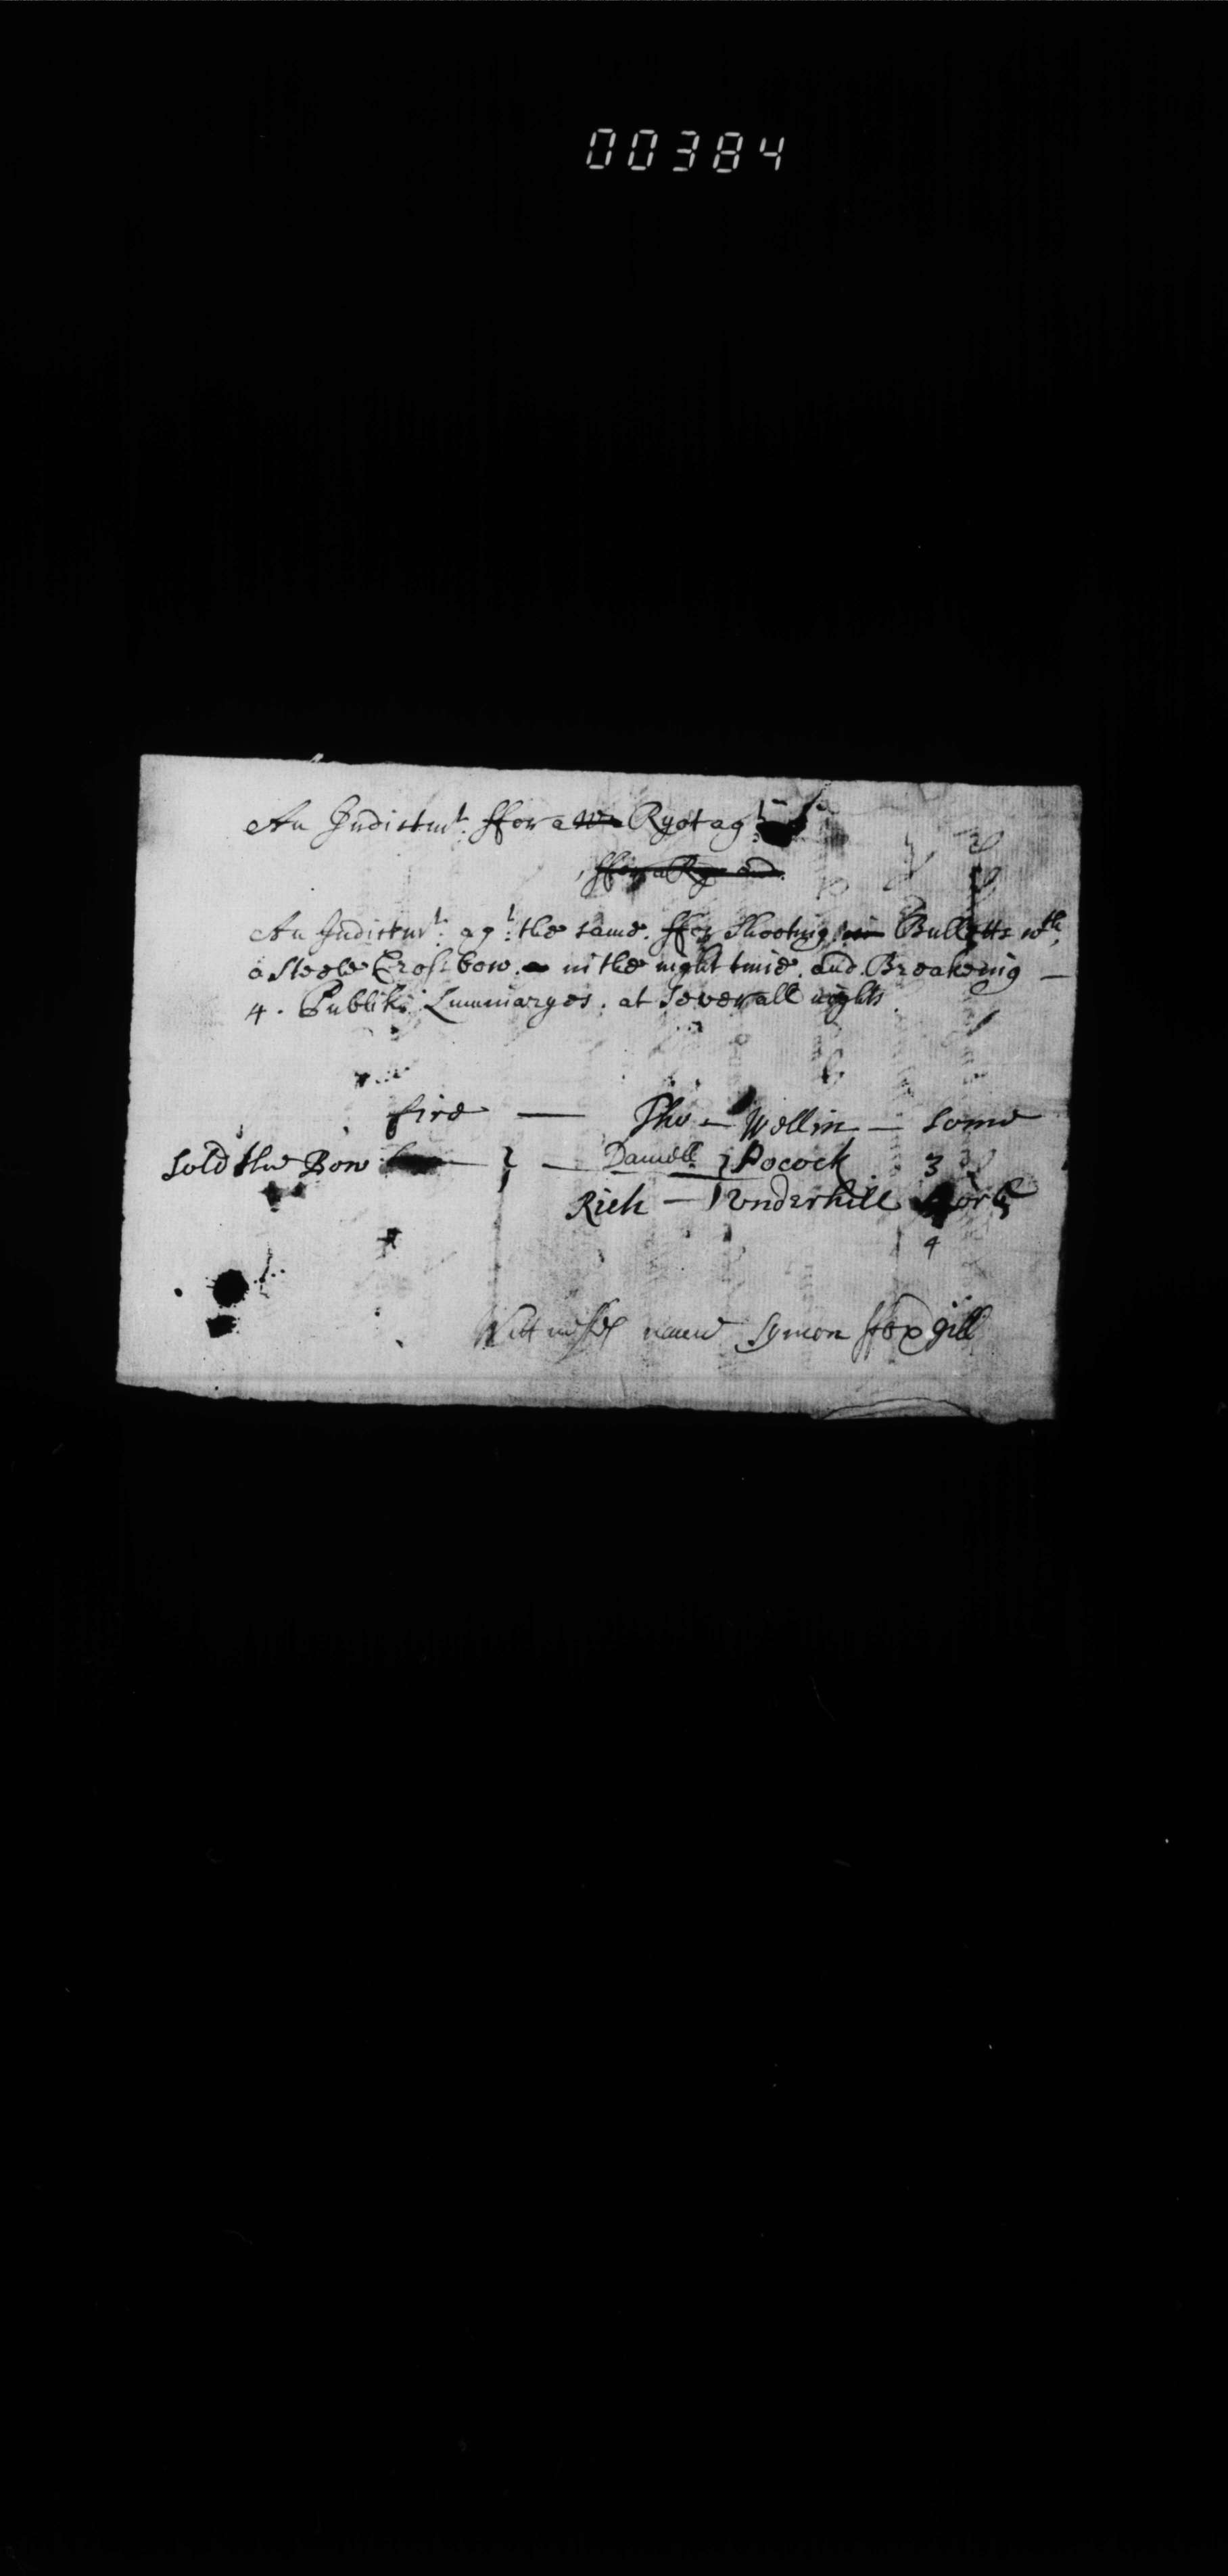 00384
An Indictmt. ffor a Ryot agt:
ffor a Ry and
An Indictmt: agt: the same. ffor Shooting Bulletts wth.
a Steele Crossbow. in the night time. and Breakeing —
4. Publiks Lummaryes. at severall nights
fire — Tho — Wellin — some
sold the Bow — Daniell Pocock 3
Rich — Underhill
4
Wittnisses name Symon ffoxgill